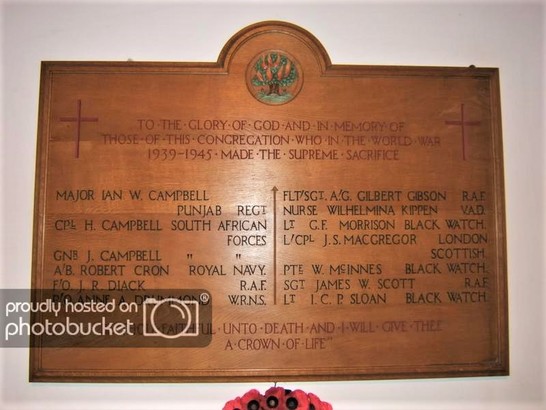 TO·THE·GLORY·OF·GOD·AND·IN·MEMORY·OF
THOSE·OF·THIS·CONGREGATION·WHO·IN·THE·WORLD·WAR
1939-1945·MADE·THE·SUPREME·SACRIFICE
MAJOR IAN W. CAMPBELL
PUNJAB REGT
CPL H. CAMPBELL SOUTH AFRICAN
FORCES
GNR J. CAMPBELL " "
A/B. ROBERT CRON ROYAL NAVY.
F/O J. R. DIACK R.A.F.
ANNE A. DRUMMOND W.R.N.S.
FLT/SGT. A/G. GILBERT GIBSON R.A.F.
NURSE WILHELMINA KIPPEN V.A.D.
LT G.F. MORRISON BLACK WATCH.
L/CPL J.S. MACGREGOR LONDON
SCOTTISH.
PTE W. McINNES BLACK WATCH.
SGT JAMES W. SCOTT R.A.F.
LT I. C. P. SLOAN BLACK WATCH.
FAITHFUL·UNTO·DEATH·AND·I·WILL·GIVE·THEE
A·CROWN·OF·LIFE"
proudly hosted on
photobucket®